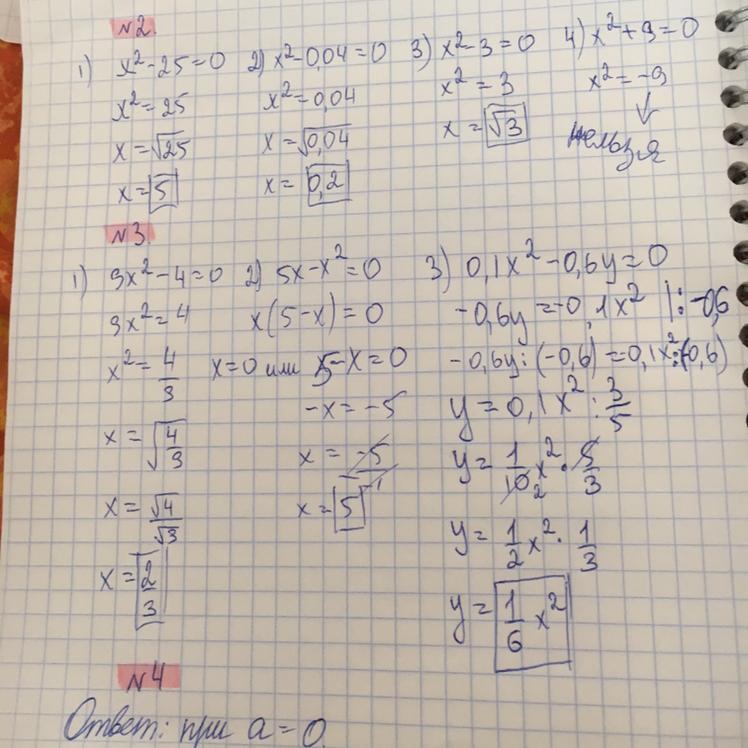 №2
1) x²-25=0
x²=25
x=√25
x=5
2) x²-0,04=0
x²=0,04
x=√0,04
x=0,2
3) x²-3=0
x²=3
x=√3
4) x²+9=0
x²=-9
нельзя
№3.
1) 9x²-4=0
9x²=4
x²=4/9
x=√(4/9)
x=√4/√9
x=2/3
2) 5x-x²=0
x(5-x)=0
x=0 или 5-x=0
-x=-5
x=5
3) 0,1x²-0,6y=0
-0,6y=-0,1x² |:-0,6
-0,6y:(-0,6)=0,1x²:(-0,6)
y=0,1x²:3/5
y=1/10x²·5/3
y=1/2x²·1/3
y=1/6x²
№4
Ответ: при a=0.